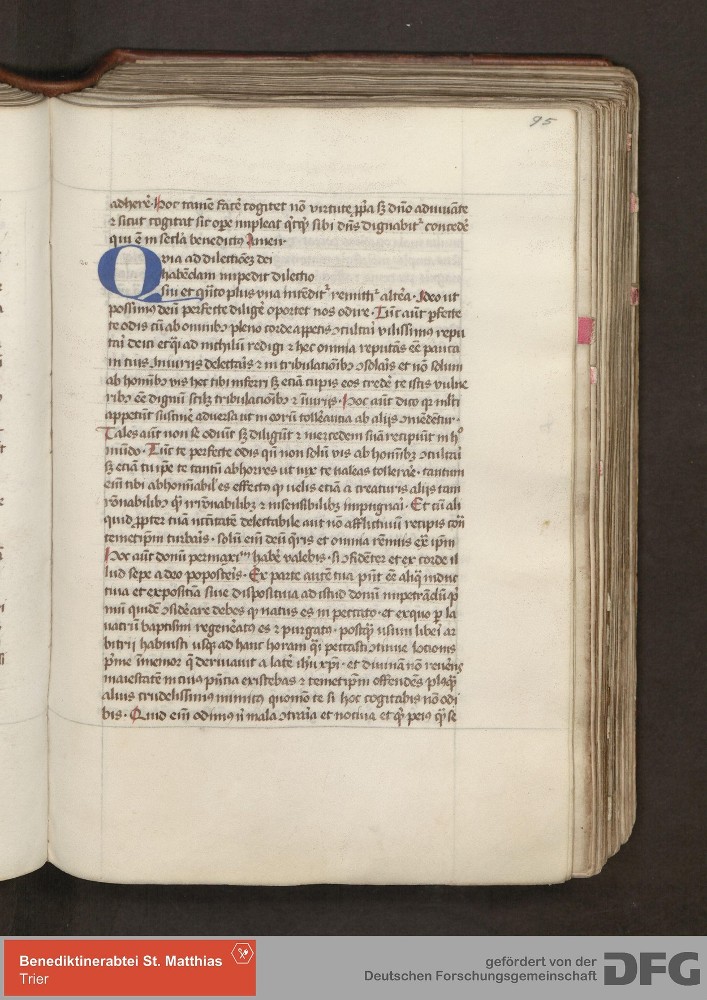 95
adherē. Hoc tamē facē cogitet nō virtute ꝓpa sꝫ dn̄o adiuuāte
⁊ sicut cogitat sic oꝑe impleat qn̄qꝫ sibi dn̄s dignabit᷑ concedē
qui ē in secl̄a benedictꝰ Amen.
Qvia ad dilectiōeꝫ dei
habēdam impedit dilectio
sui et qn̄to plus vna intēdit᷑ remittit᷑ altēa. Ideo ut
possimꝰ deū perfecte diligē oportet nos odire. Tūc aūt ꝑfecte
te odis cū ab omnibꝰ pleno corde appetis ↄculcari vilissimus repu
tari deici et qͣi ad nichilū redigi ⁊ hec omnia reputās eē pauca
in tuis iniuriis delectaris ⁊ in tribulatiōibꝰ ↄsolaris et nō solum
ab homībꝰ vis hec tibi inferri sꝫ eciā cupis eos credē te istis vulne
ribꝰ eē dignū scilꝫ tribulatiōibꝰ ⁊ iniuriis. Hoc aūt dico qꝛ mlti
appetūt sustinē adversa ut in eorū tollerācia ab aliis ↄmēdētur.
Tales aūt non se odiūt sꝫ diligūt ⁊ mercedem suā recipiūt in hͦ
mūdo. Tūc te perfecte odis qn̄ non solū vis ab homībꝫ ↄculcari
sꝫ eciā tu ipē te tantū abhorres ut vix te valeas tollerāe. tantum
em̄ tibi abhomīabil'es effectꝰ qꝫ velis etiā a creaturis aliis tam
rōnabilibꝰ qͣ irrōnabilibꝫ ⁊ insensibilibꝫ impugnari. Et cū ali
quid ꝓpter tuā utilitatē delectabile aut nō afflictiuū recipis
temetip̄m turbaris. solū em̄ deū qͣris et omnia
Hoc aūt donū permaxīᵐ habē valebis. si ↄfidēter et ex corde il
lud sepe a deo poposceris. Ex parte autē tua pn̄t eē aliqͣ induc
tiua et expositiua siue dispositiua ad istud donū impetrādū
mū quidē ↄsidēare debes qꝫ natus es in peccato. et exquo ꝑ la
uacrū baptismi regenēatꝰ es ⁊ purgatꝰ. postqͣ usum liberi ar
bitrii habuisti usqꝫ ad hanc horam qͣi peccasti ↄtinue locionis
ꝓ̄me īmemor q̄ deriuauit a latē ih̄u xp̄i. et diuinā nō reuēns
maiestatē in cuiꝰ pn̄cia existebas ⁊ temetip̄m offendēs plusqͣ
alius crudelissimꝰ inimicꝰ quomō te si hoc cogitabis nō odi
bis. Quid em̄ odimꝰ n̄ mala ↄtraria et nociua et qͣ peiꝰ qͣ se
Benediktinerabtei St. Matthias
Trier
gefördert von der
Deutschen Forschungsgemeinschaft
DFG